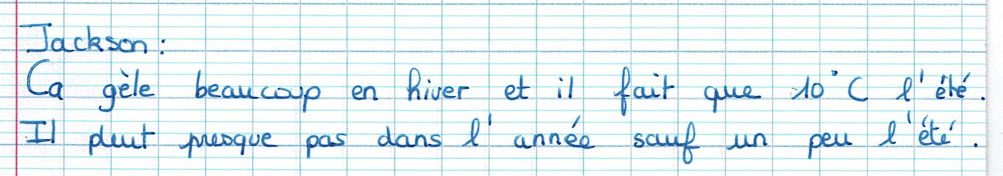 Jackson :
Ca gèle beaucoup en hiver et il fait que 10°C l'été.
Il pleut presque pas dans l'année sauf un peu l'été.